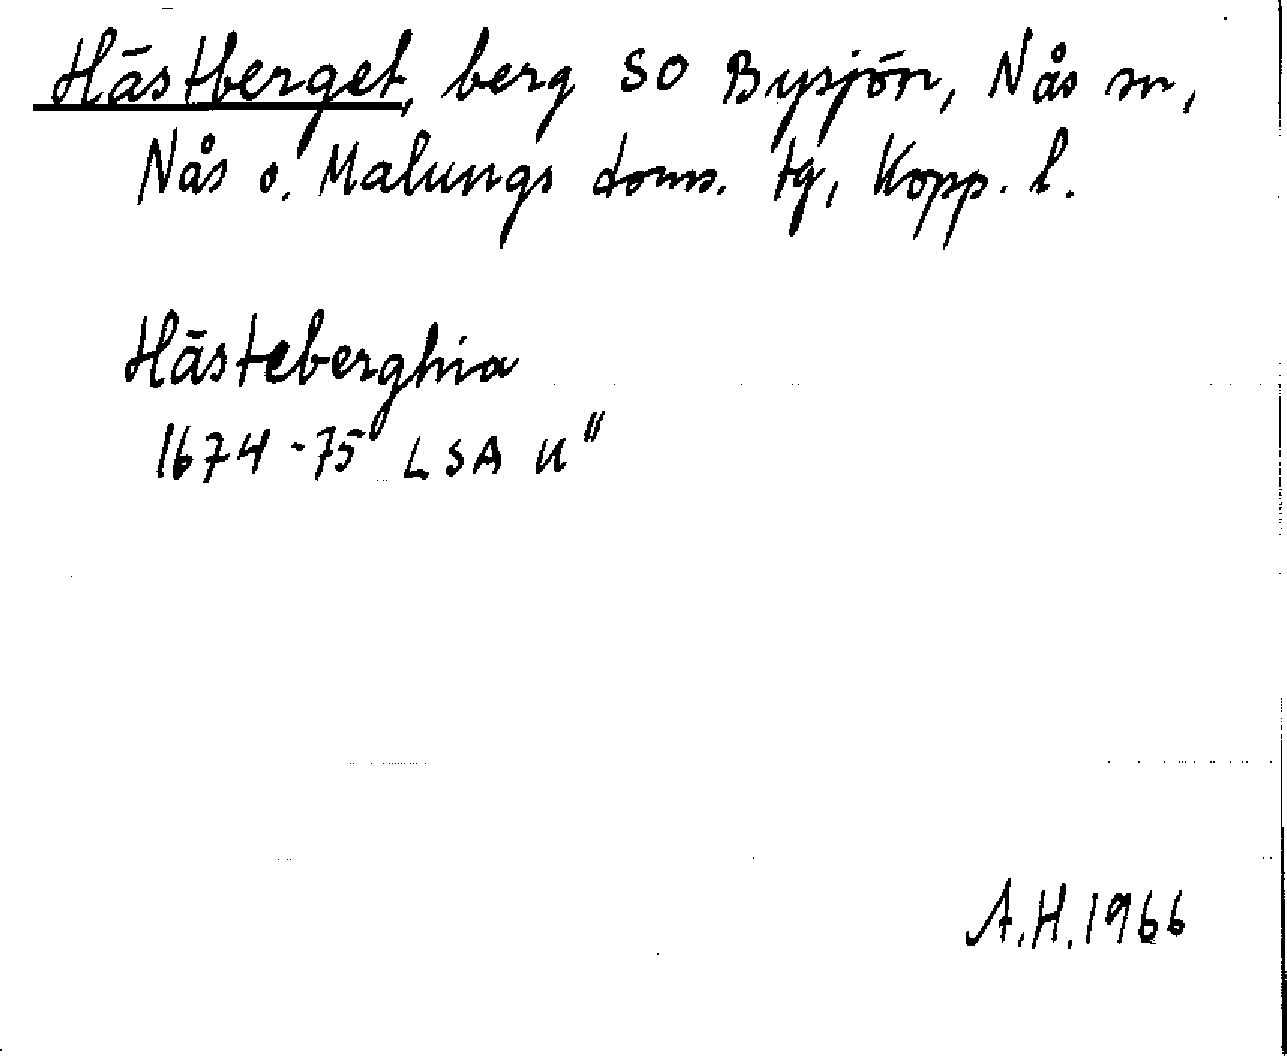 Hästberget, berg SO Bysjön, Nås sn,
Nås o. Malungs doms. tg, Kopp. l.
Hästeberghia
1674-75 LSA U"
A.H. 1966